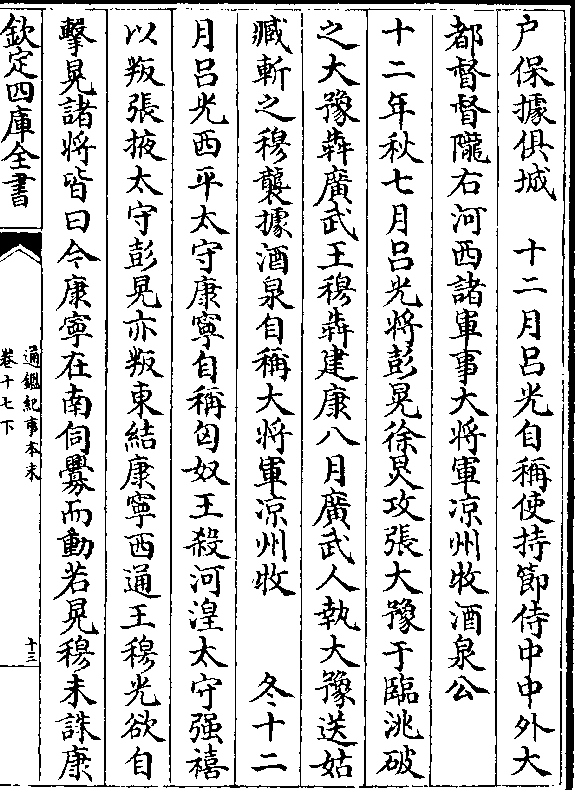 户保據俱城　十二月吕光自稱使持節侍中中外大
都督督隴右河西諸軍事大將軍凉州牧酒泉公
十二年秋七月吕光將彭晃徐炅攻張大豫于臨洮破
之大豫犇廣武王穆犇建康八月廣武人執大豫送姑
臧斬之穆襲據酒泉自稱大將軍凉州牧　冬十二
月吕光西平太守康寧自稱匈奴王殺河湟太守强禧
以叛張掖太守彭晃亦叛東結康寧西通王穆光欲自
擊晃諸將皆曰今康寧在南伺釁而動若晃穆未誅康
欽定四庫全書
通鑑紀事本末
卷十七下
十三